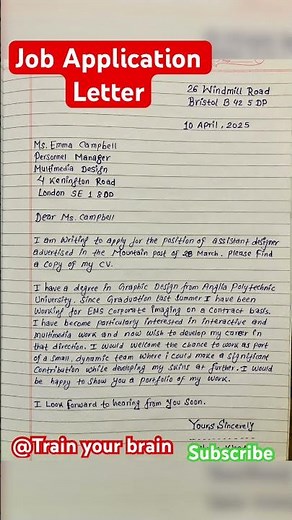 Job Application
Letter
26 Windmill Road
Bristol B 42 5 DP
10 April, 2025
Ms. Emma Campbell
Personnel Manager
Multimedia Design
4 Kenington Road
London SE 1 8 DD
Dear Ms. Campbell
I am writing to apply for the position of assistant designer
advertised in the Mountain post of 28 March. please find
a copy of my CV.
I have a degree in Graphic Design from Anglia Polytechnic
University. Since Graduation last summer I have been
working for EMS Corporate Imaging on a Contract basis.
I have become particularly interested in interactive and
multimedia work and now wish to develop my carer in
that direction. I would welcome the chance to work as part
of a small, dynamic team where i could make a significant
Contribution while developing my skins at further. I would
be happy to show you a portfolio of my work.
I Look forward to hearing from you soon.
Yours Sincerely
@Train your brain
Subscribe